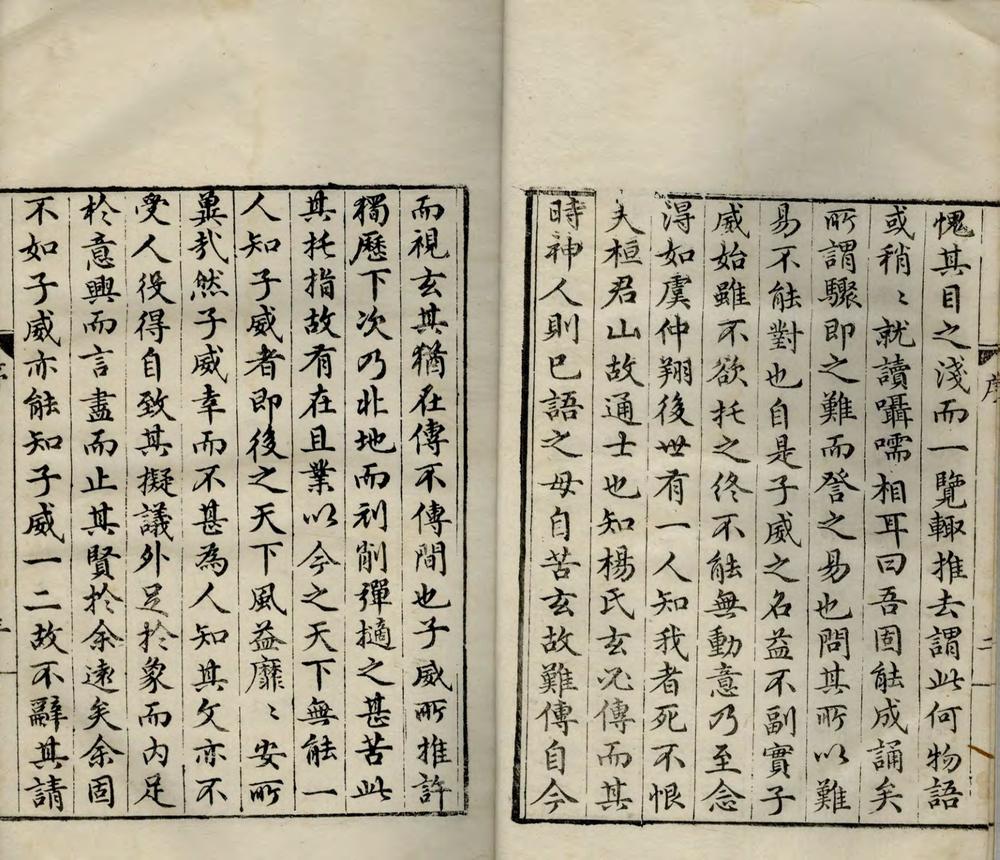 愧其目之淺而一覽輙推去謂此何物語
或稍〻就讀囁嚅相耳曰吾固能成誦矣
所謂驟即之難而登之易也問其所以難
易不能對也自是子威之名益不副實子
威始雖不欲托之終不能無動意乃至念
淂如虞仲翔後世有一人知我者死不恨
夫桓君山故通士也知楊氏玄必傳而其
時神人則已語之毋自苦玄故難傳自今
序
二
而視玄其猶在傳不傳間也子威所推許
獨歷下次乃北地而刓削彈擿之甚苦此
其托指故有在且業以今之天下無能一
人知子威者即後之天下風益靡〻安所
冀哉然子威幸而不甚為人知其文亦不
受人役得自致其擬議外足於象而內足
於意興而言盡而止其賢於余遠矣余固
不如子威亦能知子威一二故不辭其請